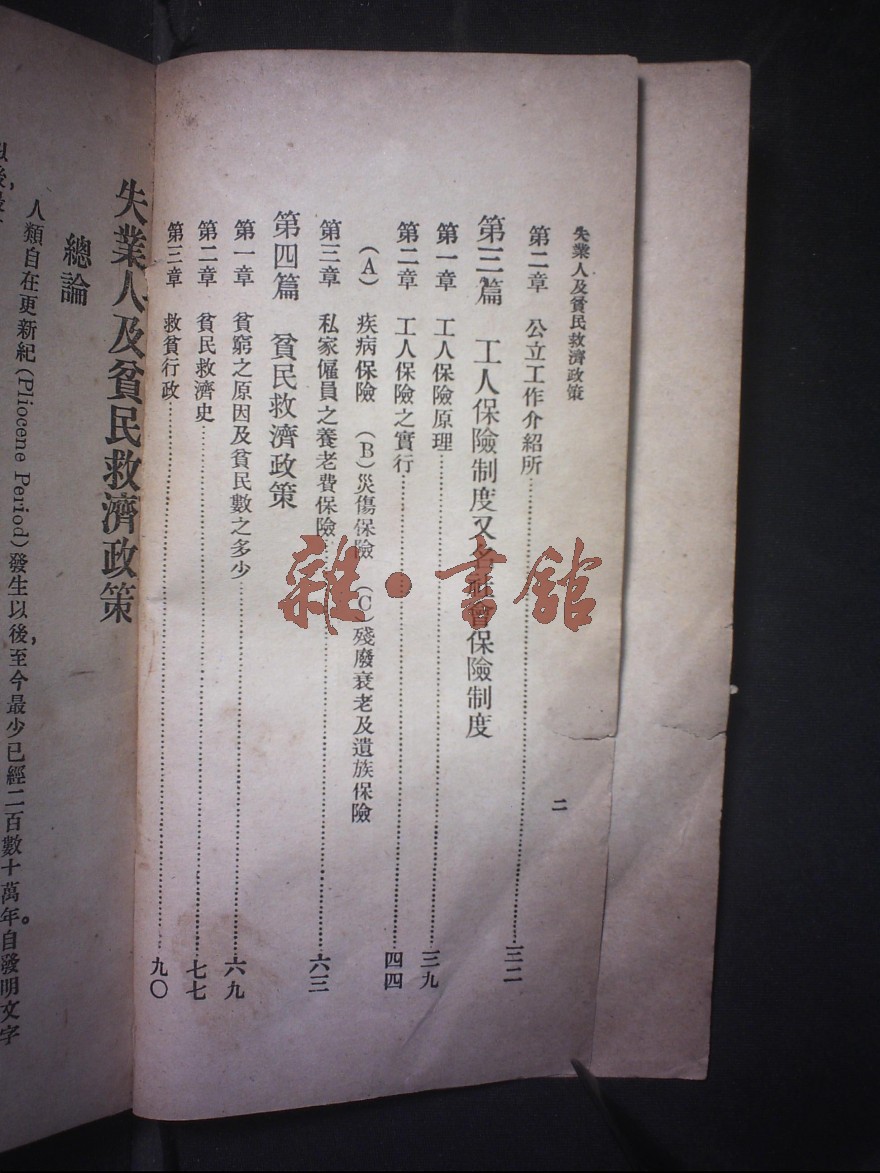 失業人及貧民救濟政策
第二章　公立工作介紹所……三二
第三篇　工人保險制度又名社會保險制度
第一章　工人保險原理……三九
第二章　工人保險之實行……四四
(A)　疾病保險　(B)災傷保險　(C)殘廢衰老及遺族保險
第三章　私家僱員之養老費保險……六三
第四篇　貧民救濟政策
第一章　貧窮之原因及貧民數之多少……六九
第二章　貧民救濟史……七七
第三章　救貧行政……九〇
二
失業人及貧民救濟政策
總論
人類自在更新紀(Pliocene Period)發生以後,至今最少已經二百數十萬年。自發明文字
雜·書館